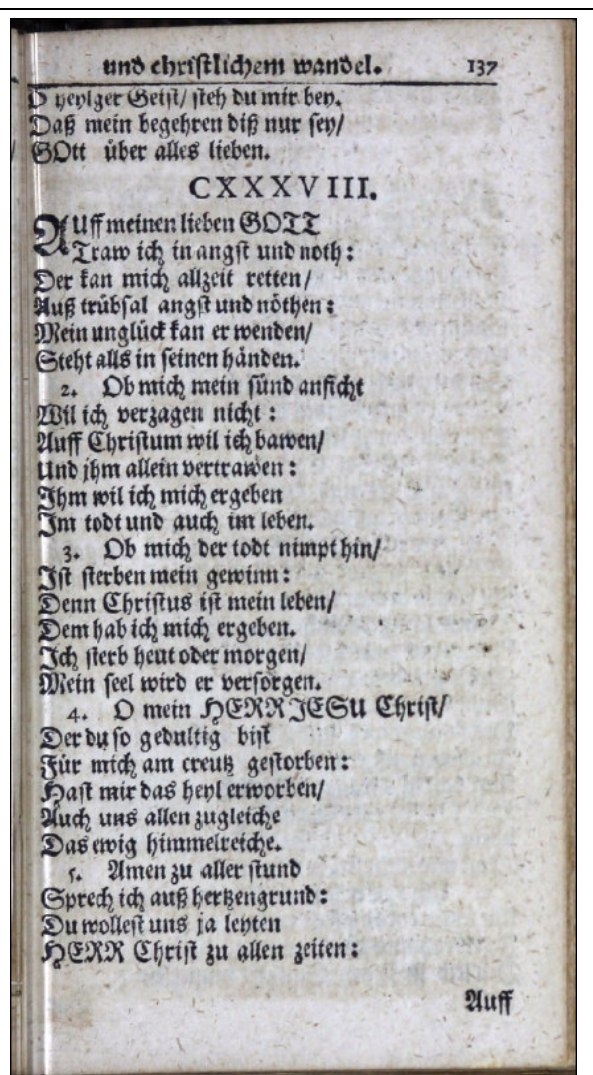 und christlichem wandel. 137
O heylger Geist/ steh du mir bey.
Daß mein begehren diß nur sey/
GOtt über alles lieben.
CXXXVIII.
AUff meinen lieben GOTT
Traw ich in angst und noth:
Der kan mich allzeit retten/
Auß trübsal angst und nöthen:
Mein unglück kan er wenden/
Steht alls in seinen händen.
2. Ob mich mein sünd anficht
Wil ich verzagen nicht:
Auff Christum wil ich bawen/
Und jhm allein vertrawen:
Ihm wil ich mich ergeben
Im todt und auch im leben.
3. Ob mich der todt nimpt hin/
Ist sterben mein gewinn:
Denn Christus ist mein leben/
Dem hab ich mich ergeben.
Ich sterb heut oder morgen/
Mein seel wird er versorgen.
4. O mein HERR JESU Christ/
Der du so gedultig bist
Für mich am creutz gestorben:
Hast mir das heyl erworben/
Auch uns allen zugleiche
Das ewig himmelreiche.
5. Amen zu aller stund
Sprech ich auß hertzengrund:
Du wollest uns ja leyten
HERR Christ zu allen zeiten:
Auff